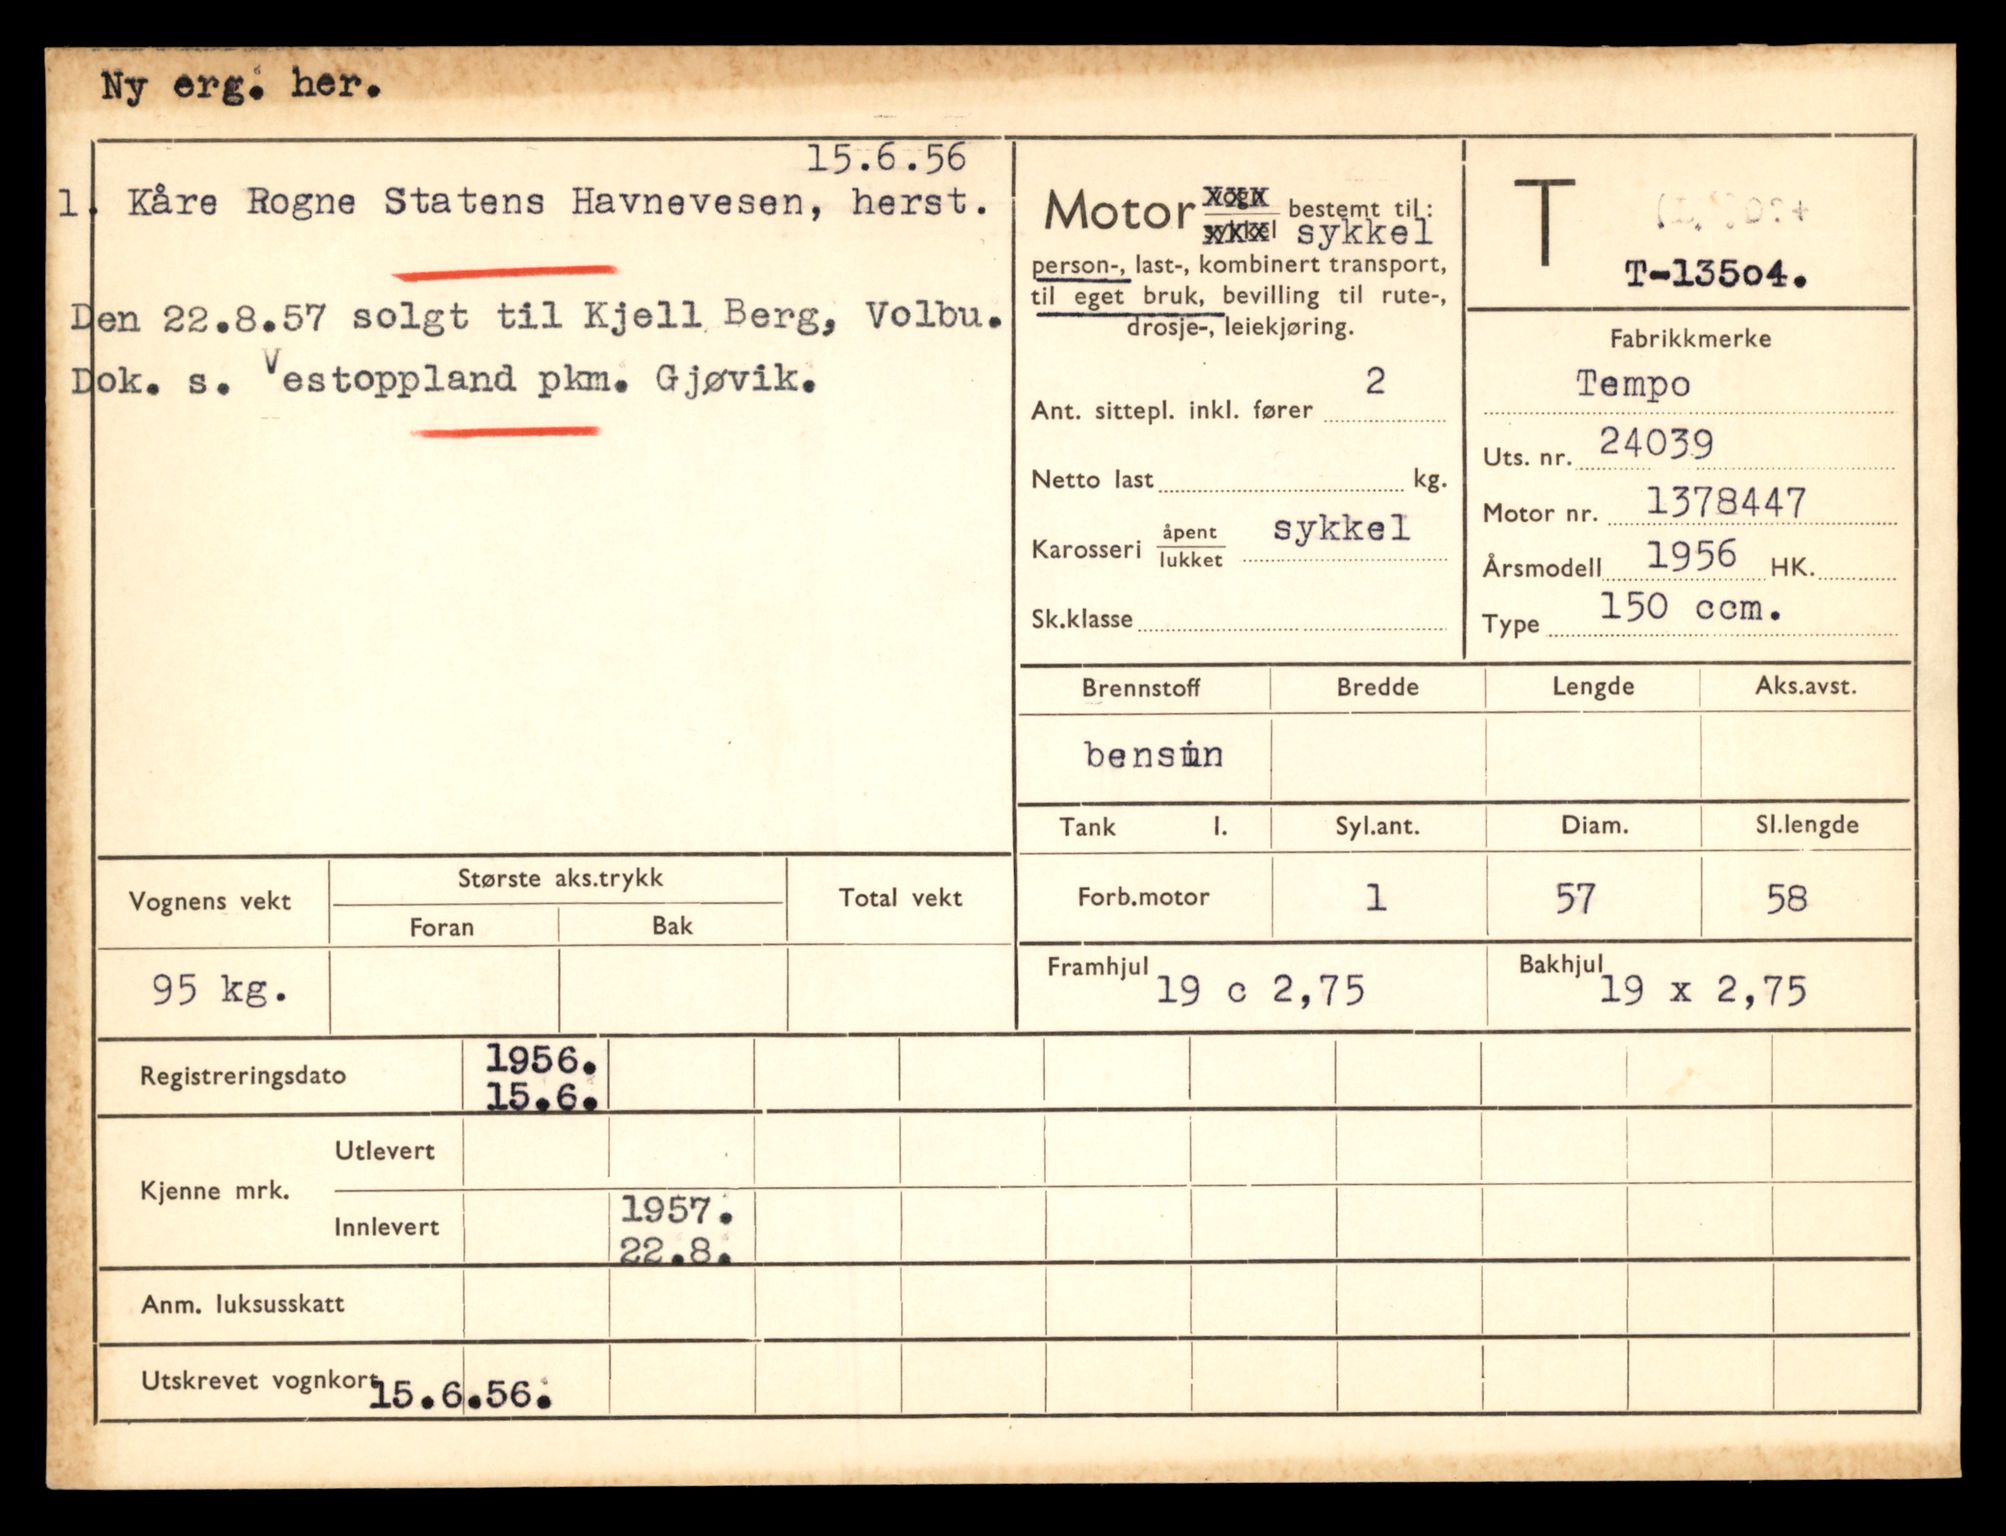 Ny erg. her.
15.6.56
1. Kåre Rogne Statens Havnevesen, herst.
Den 22.8.57 solgt til Kjell Berg, Volbu.
Dok. s. Vestoppland pkm. Gjøvik.
Motor vogn sykkel bestemt til:
sykkel
person-, last-, kombinert transport,
til eget bruk, bevilling til rute-,
drosje-, leiekjøring.
Ant. sittepl. inkl. fører 2
Netto last kg.
Karosseri åpent lukket sykkel
Sk.klasse
T
T-13504.
Fabrikkmerke
Tempo
Uts. nr. 24039
Motor nr. 1378447
Årsmodell 1956 HK.
Type 150 ccm.
Brennstoff Bredde Lengde Aks.avst.
bensin
Tank l. Syl.ant. Diam. Sl.lengde
Forb.motor 1 57 58
Framhjul 19 c 2,75 Bakhjul 19 x 2,75
Vognens vekt Største aks.trykk Total vekt
Foran Bak
95 kg.
Registreringsdato 1956.
15.6.
Kjenne mrk. Utlevert
Innlevert 1957.
22.8.
Anm. luksusskatt
Utskrevet vognkort 15.6.56.